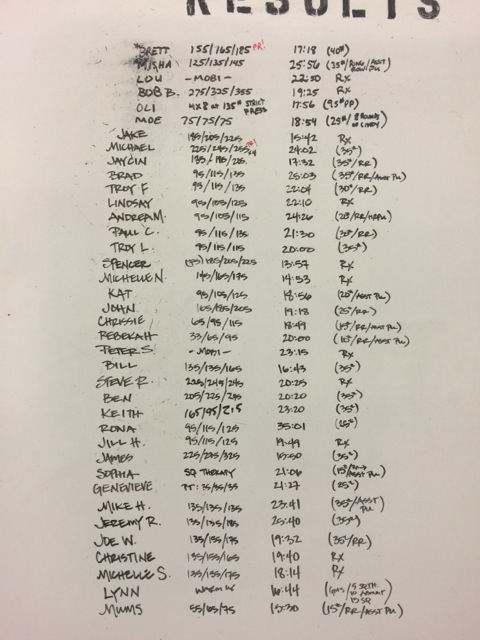 RESULTS
BRETT 155/165/185 PR! 17:18 (40#)
MISHA 125/135/145 25:56 (35#/RING/ASST ROW/PU)
LOU - MOBI - 22:50 RX
BOB B. 275/325/355 19:25 RX
OLI 4X8 AT 135# STRICT PRESS 17:56 (95# PP)
MOE 75/75/75 18:54 (25#/ 8 ROUNDS OF CINDY)
JAKE 185/205/225 15:42 RX
MICHAEL 225/245/255 24:02 (35#)
JAYCIN 17:32 (35#/RR)
BRAD 95/115/135 25:03 (35#/RR/ASST PU)
TROY F 95/115/135 22:04 (30#/RR)
LINDSAY 95/105/125 22:10 RX
ANDREA M. 95/105/115 24:26
PAUL C. 95/115/135 21:30 (30#/RR)
TROY L. 95/115/115 20:00 (35#)
SPENCER 185/205/225 13:57 RX
MICHELLE N 145/165/175 14:53 RX
KAT 95/105/125 18:56 (20#/ASST PU)
JOHN 165/185/205 19:18 (25#/RR)
CHRISSIE 65/95/115 18:49 (15#/RR/ASST PU)
REBEKAH 33/65/95 20:00 (10#/RR/ASST PU)
PETER S. - MOBI - 23:15 RX
BILL 135/135/165 16:43 (35#)
STEVE R. 225/245/245 20:25 RX
BEN 20:20 (35#)
KEITH 165/95/215 23:20 (35#)
RONA 95/115/125 35:01 (25#)
JILL H. 95/115/125 19:49 RX
JAMES 225/275/325 (35#)
SOPHIA SQ THERAPY 21:06
GENEVIEVE 21:27 (25#)
MIKE H. 135/135/135 23:41 (35#/ASST PU)
JEREMY R. 135/155/185 25:40 (35#)
JOE W. 135/155/175 19:32 (35#/RR)
CHRISTINE 135/155/165 19:40 RX
MICHELLE S. 135/155/175 18:14 RX
LYNN WARM UP 16:44
MUMS 55/65/75 15:30 (15#/RR/ASST PU)